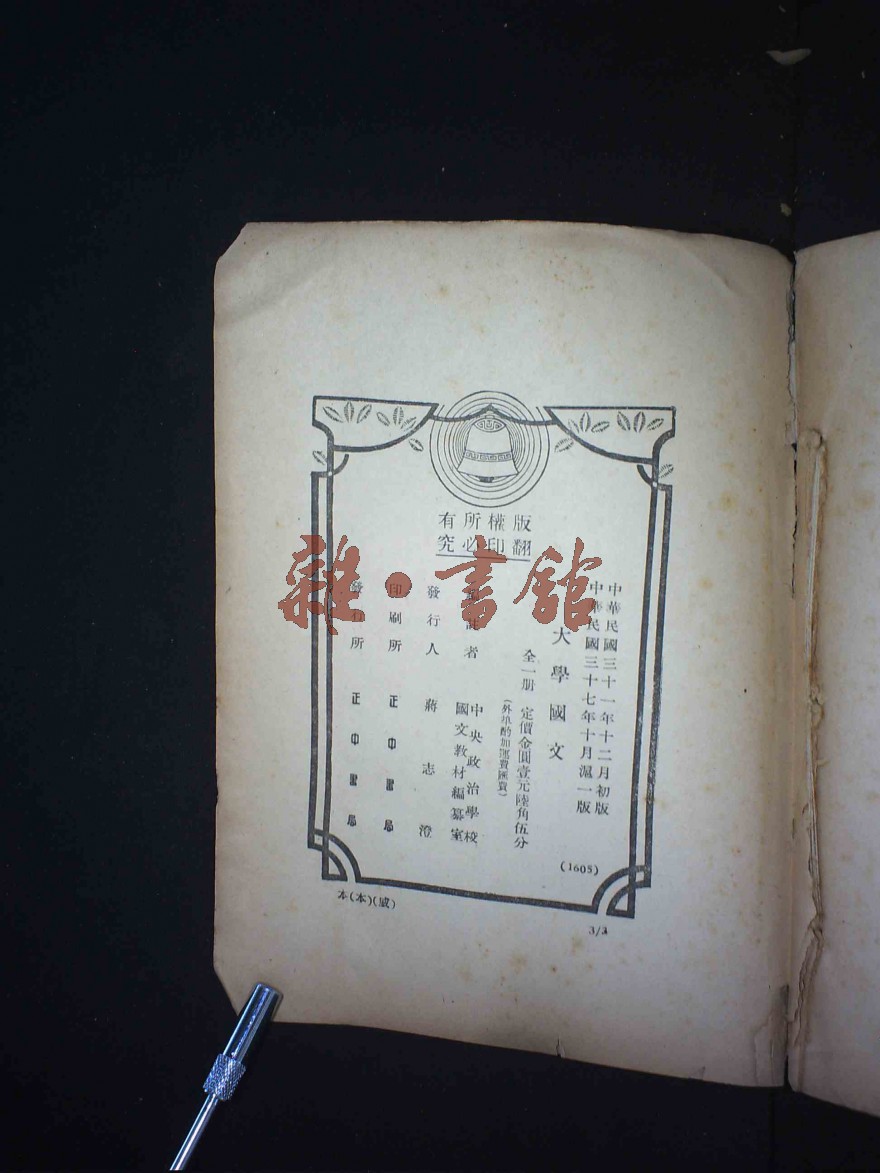 版權所有
翻印必究
中華民國三十一年十二月初版
中華民國三十七年十月滬一版
大學國文
全一册 定價金圓壹元陸角伍分
(外埠酌加運費匯費)
者 中央政治學校
國文教材編纂室
發行人 蔣志澄
印刷所 正中書局
發行所 正中書局
(1605)
本(本)(威)
3/3
雜·書館